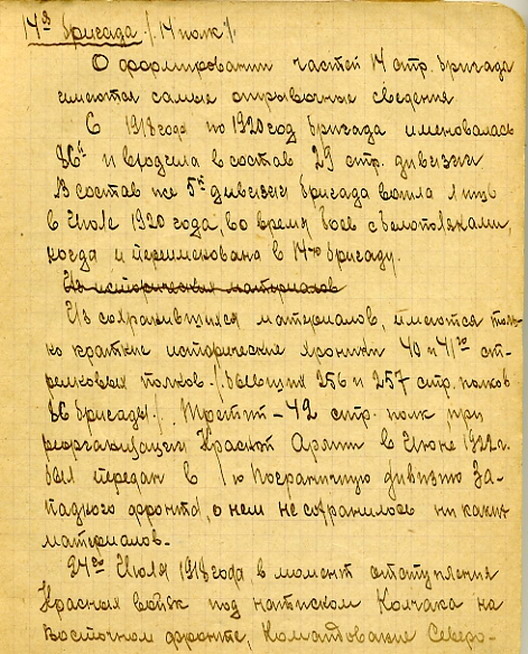 14ая бригада /14 полк/.
О формировании частей 14 стр. бригады
имеются самые отрывочные сведения
С 1918 года по 1920 год бригада именовалась
86й и входила в состав 29 стр. дивизии
В состав же 5й дивизии бригада вошла лишь
в Июле 1920 года, во время боев с белополяками,
когда и переименована в 14ую бригаду.
Из исторических материалов
Из сохранившихся материалов, имеются толь-
ко краткие исторические хроники 40 и 41го ст-
релковых полков /бывших 256 и 257 стр. полков
86 бригады/. Третий - 42 стр. полк при
реорганизации Красной Армии в Июне 1922 г.
был передан в 1ю Пограничную дивизию За-
падного фронта, о нем не сохранилось ни каких
материалов.
24го Июля 1918 года в момент отступления
Красных войск под натиском Колчака на
Восточном фронте, Командование Северо-